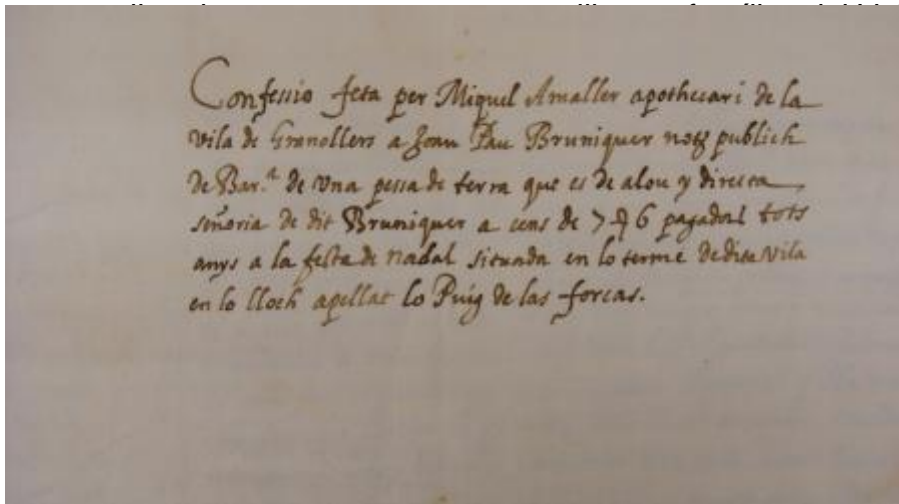 Confessio feta per Miquel Amaller apothecari de la
vila de Granollers a Joan Pau Bruniquer notȝ publich
de Bar.ª de vna pessa de terra que es de alou y directa
señoria de dit Bruniquer a cens de 7 6 pagadors tots
anys a la festa de nadal situada en lo terme de dita vila
en lo lloch apellat lo Puig de las forcas.